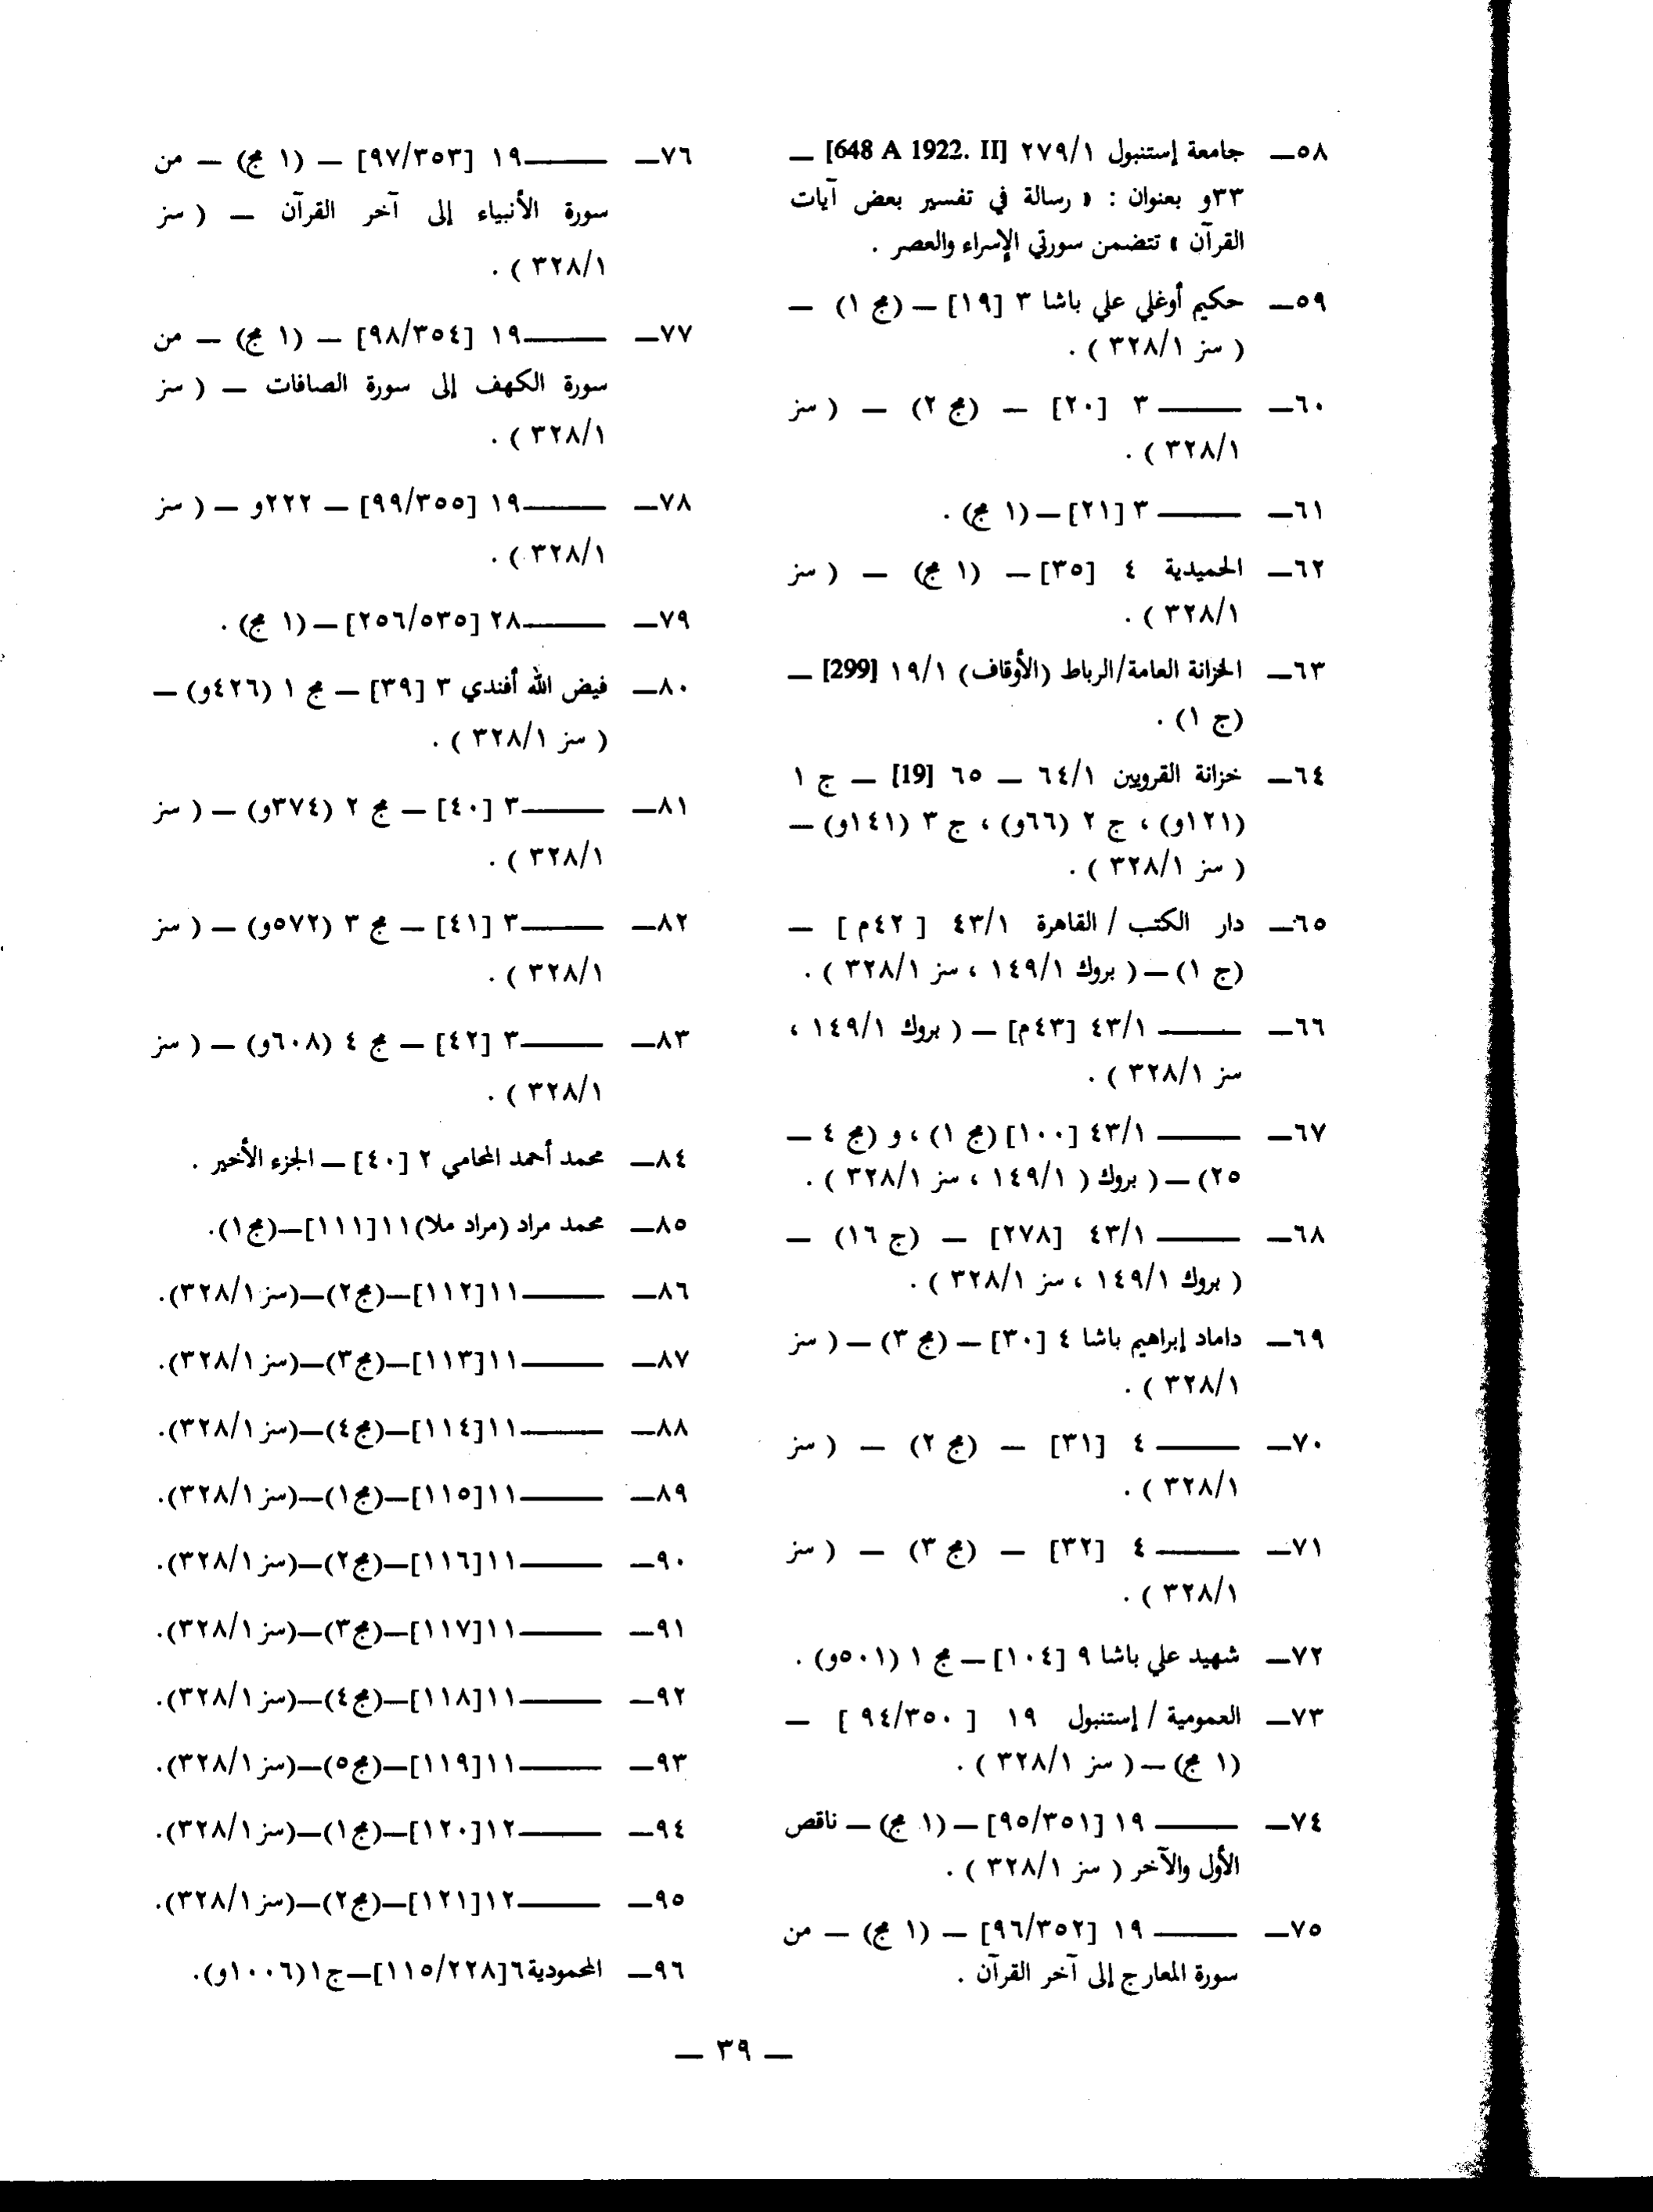 ٥٨ــ جامعة إستنبول ٢٧٩/١ [648 A 1922. II] ــ
٣٣و بعنوان : « رسالة في تفسير بعض آيات
القرآن » تتضمن سورتي الإسراء والعصر .
٥٩ــ حكيم أوغلي علي باشا ٣ [١٩] ــ (مج ١) ــ
( سز ٣٢٨/١ ) .
٦٠ــ ـــــــ ٣ [٢٠] ــ (مج ٢) ــ ( سز
٣٢٨/١ ) .
٦١ــ ـــــــ ٣ [٢١] ــ (١ مج) .
٦٢ــ الحميدية ٤ [٣٥] ــ (١ مج) ــ ( سز
٣٢٨/١ ) .
٦٣ــ الخزانة العامة/الرباط (الأوقاف) ١٩/١ [299] ــ
(ج ١) .
٦٤ــ خزانة القرويين ٦٤/١ ــ ٦٥ [19] ــ ج ١
(١٢١و) ، ج ٢ (٦٦و) ، ج ٣ (١٤١و) ــ
( سز ٣٢٨/١ ) .
٦٥ــ دار الكتب / القاهرة ٤٣/١ [ ٤٢م ] ــ
(ج ١) ــ ( بروك ١٤٩/١ ، سز ٣٢٨/١ ) .
٦٦ــ ـــــــ ٤٣/١ [٤٣م] ــ ( بروك ١٤٩/١ ،
سز ٣٢٨/١ ) .
٦٧ــ ـــــــ ٤٣/١ [١٠٠] (مج ١) ، و (مج ٤ ــ
٢٥) ــ ( بروك ( ١٤٩/١ ، سز ٣٢٨/١ ) .
٦٨ــ ـــــــ ٤٣/١ [٢٧٨] ــ (ج ١٦) ــ
( بروك ١٤٩/١ ، سز ٣٢٨/١ ) .
٦٩ــ داماد إبراهيم باشا ٤ [٣٠] ــ (مج ٣) ــ ( سز
٣٢٨/١ ) .
٧٠ــ ـــــــ ٤ [٣١] ــ (مج ٢) ــ ( سز
٣٢٨/١ ) .
٧١ــ ـــــــ ٤ [٣٢] ــ (مج ٣) ــ ( سز
٣٢٨/١ ) .
٧٢ــ شهيد علي باشا ٩ [١٠٤] ــ مج ١ (٥٠١و) .
٧٣ــ العمومية / إستنبول ١٩ [ ٩٤/٣٥٠ ] ــ
(١ مج) ــ ( سز ٣٢٨/١ ) .
٧٤ــ ـــــــ ١٩ [٩٥/٣٥١] ــ (١ مج) ــ ناقص
الأول والآخر ( سز ٣٢٨/١ ) .
٧٥ــ ـــــــ ١٩ [٩٦/٣٥٢] ــ (١ مج) ــ من
سورة المعارج إلى آخر القرآن .
٧٦ــ ـــــــ١٩ [٩٧/٣٥٣] ــ (١ مج) ــ من
سورة الأنبياء إلى آخر القرآن ــ ( سز
٣٢٨/١ ) .
٧٧ــ ـــــــ١٩ [٩٨/٣٥٤] ــ (١ مج) ــ من
سورة الكهف إلى سورة الصافات ــ ( سز
٣٢٨/١ ) .
٧٨ــ ـــــــ١٩ [٩٩/٣٥٥] ــ ٢٢٢و ــ ( سز
٣٢٨/١ ) .
٧٩ــ ـــــــ٢٨ [٢٥٦/٥٣٥] ــ (١ مج) .
٨٠ــ فيض الله أفندي ٣ [٣٩] ــ مج ١ (٤٢٦و) ــ
( سز ٣٢٨/١ ) .
٨١ــ ـــــــ٣ [٤٠] ــ مج ٢ (٣٧٤و) ــ ( سز
٣٢٨/١ ) .
٨٢ــ ـــــــ٣ [٤١] ــ مج ٣ (٥٧٢و) ــ ( سز
٣٢٨/١ ) .
٨٣ــ ـــــــ٣ [٤٢] ــ مج ٤ (٦٠٨و) ــ ( سز
٣٢٨/١ ) .
٨٤ــ محمد أحمد المحامي ٢ [٤٠] ــ الجزء الأخير .
٨٥ــ محمد مراد (مراد ملا) ١١[١١١]ــ(مج١).
٨٦ــ ـــــــ١١[١١٢]ــ(مج٢)ــ(سز ٣٢٨/١).
٨٧ــ ـــــــ١١[١١٣]ــ(مج٣)ــ(سز ٣٢٨/١).
٨٨ــ ـــــــ١١[١١٤]ــ(مج٤)ــ(سز ٣٢٨/١).
٨٩ــ ـــــــ١١[١١٥]ــ(مج١)ــ(سز ٣٢٨/١).
٩٠ــ ـــــــ١١[١١٦]ــ(مج٢)ــ(سز ٣٢٨/١).
٩١ــ ـــــــ١١[١١٧]ــ(مج٣)ــ(سز ٣٢٨/١).
٩٢ــ ـــــــ١١[١١٨]ــ(مج٤)ــ(سز ٣٢٨/١).
٩٣ــ ـــــــ١١[١١٩]ــ(مج٥)ــ(سز ٣٢٨/١).
٩٤ــ ـــــــ١٢[١٢٠]ــ(مج١)ــ(سز ٣٢٨/١).
٩٥ــ ـــــــ١٢[١٢١]ــ(مج٢)ــ(سز ٣٢٨/١).
٩٦ــ المحمودية٦[١١٥/٢٢٨]ــج١(١٠٠٦و).
ــ ٣٩ ــ